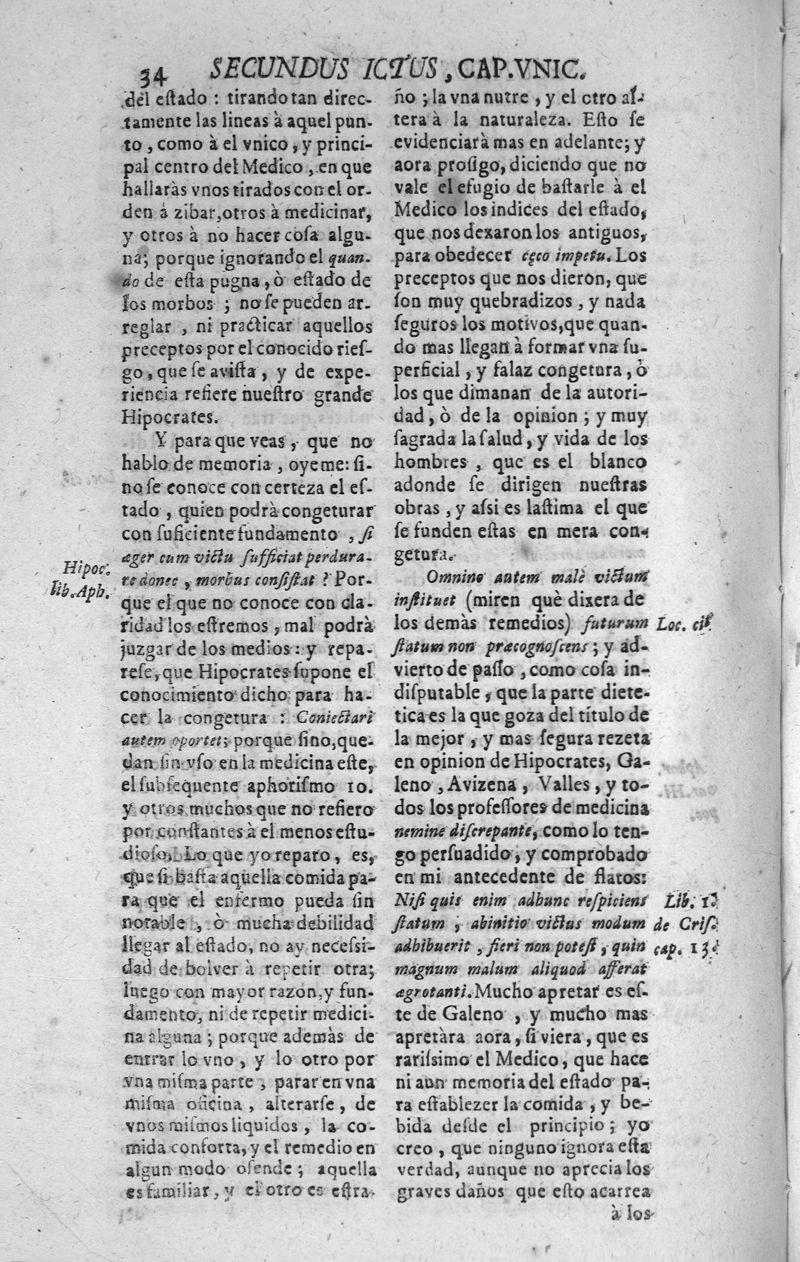 34 SECUNDUS ICTUS, CAP.VNIC.
del eſtado : tirando tan direc-
tamente las lineas à aquel pun-
to, como à el vnico, y princi-
pal centro del Medico, en que
hallaràs vnos tirados con el or-
den á zibar, otros à medicinar,
y otros à no hacer coſa algu-
na; porque ignorando el quan-
do de eſta pugna, ò eſtado de
los morbos ; no ſe pueden ar-
reglar , ni practicar aquellos
preceptos por el conocido rieſ-
go, que ſe aviſta, y de expe-
riencia refiere nueſtro grande
Hipocrates.
Y para que veas, que no
hablo de memoria, oyeme: ſi-
no ſe conoce con certeza el eſ-
tado , quien podrà congeturar
con ſuficiente fundamento , ſi
æger cum victu ſufficiat perdura-
re donec , morbus conſiſtat ? Por-
que el que no conoce con cla-
ridad los eſtremos, mal podrà
juzgar de los medios : y repa-
reſe, que Hipocrates ſupone el
conocimiento dicho para ha-
cer la congetura : Coniectari
autem oportet; porque ſino, que-
dan ſin vſo en la medicina eſte,
el ſubſequente aphoriſmo 10.
y otros muchos que no refiero
por conſtantes à el menos eſtu-
dioſo. Lo que yo reparo, es,
que ſi baſta aquella comida pa-
ra que el enfermo pueda ſin
notable , ò mucha debilidad
llegar al eſtado, no ay neceſsi-
dad de bolver à repetir otra;
luego con mayor razon, y fun-
damento, ni de repetir medici-
na alguna ; porque ademàs de
entrar lo vno , y lo otro por
vna miſma parte , parar en vna
miſma oficina , alterarſe , de
vnos miſmos liquidos , la co-
mida conforta, y el remedio en
algun modo ofende ; aquella
es familiar, y el otro es eſtra-
Hipoc.
lib. Aph.
ño ; la vna nutre , y el otro al-
tera à la naturaleza. Eſto ſe
evidenciarà mas en adelante; y
aora proſigo, diciendo que no
vale el efugio de baſtarle à el
Medico los indices del eſtado,
que nos dexaron los antiguos,
para obedecer cęco impetu. Los
preceptos que nos dieron, que
ſon muy quebradizos , y nada
ſeguros los motivos, que quan-
do mas llegan à formar vna ſu-
perficial , y falaz congetura, ò
los que dimanan de la autori-
dad, ò de la opinion ; y muy
ſagrada la ſalud, y vida de los
hombres , que es el blanco
adonde ſe dirigen nueſtras
obras , y aſsi es laſtima el que
ſe funden eſtas en mera con-
getura.
Omnino autem malè victum
inſtituet (miren què dixera de
los demàs remedios) futurum
ſtatum non præcognoſcens ; y ad-
vierto de paſſo , como coſa in-
diſputable , que la parte diete-
tica es la que goza del titulo de
la mejor , y mas ſegura rezeta
en opinion de Hipocrates, Ga-
leno , Avizena , Valles , y to-
dos los profeſſores de medicina
nemine diſcrepante, como lo ten-
go perſuadido, y comprobado
en mi antecedente de flatos:
Niſi quis enim adhunc reſpiciens
ſtatum , abinitio victus modum
adhibuerit , fieri non poteſt, quin
magnum malum aliquod afferat
ægrotanti. Mucho apretar es eſ-
te de Galeno , y mucho mas
apretàra aora, ſi viera, que es
rariſsimo el Medico, que hace
ni aun memoria del eſtado pa-
ra eſtablezer la comida , y be-
bida deſde el principio ; yo
creo , que ninguno ignora eſta
verdad, aunque no aprecia los
graves daños que eſto acarrea
à los
Loc. cit.
Lib. 1.
de Criſ.
cap. 13.